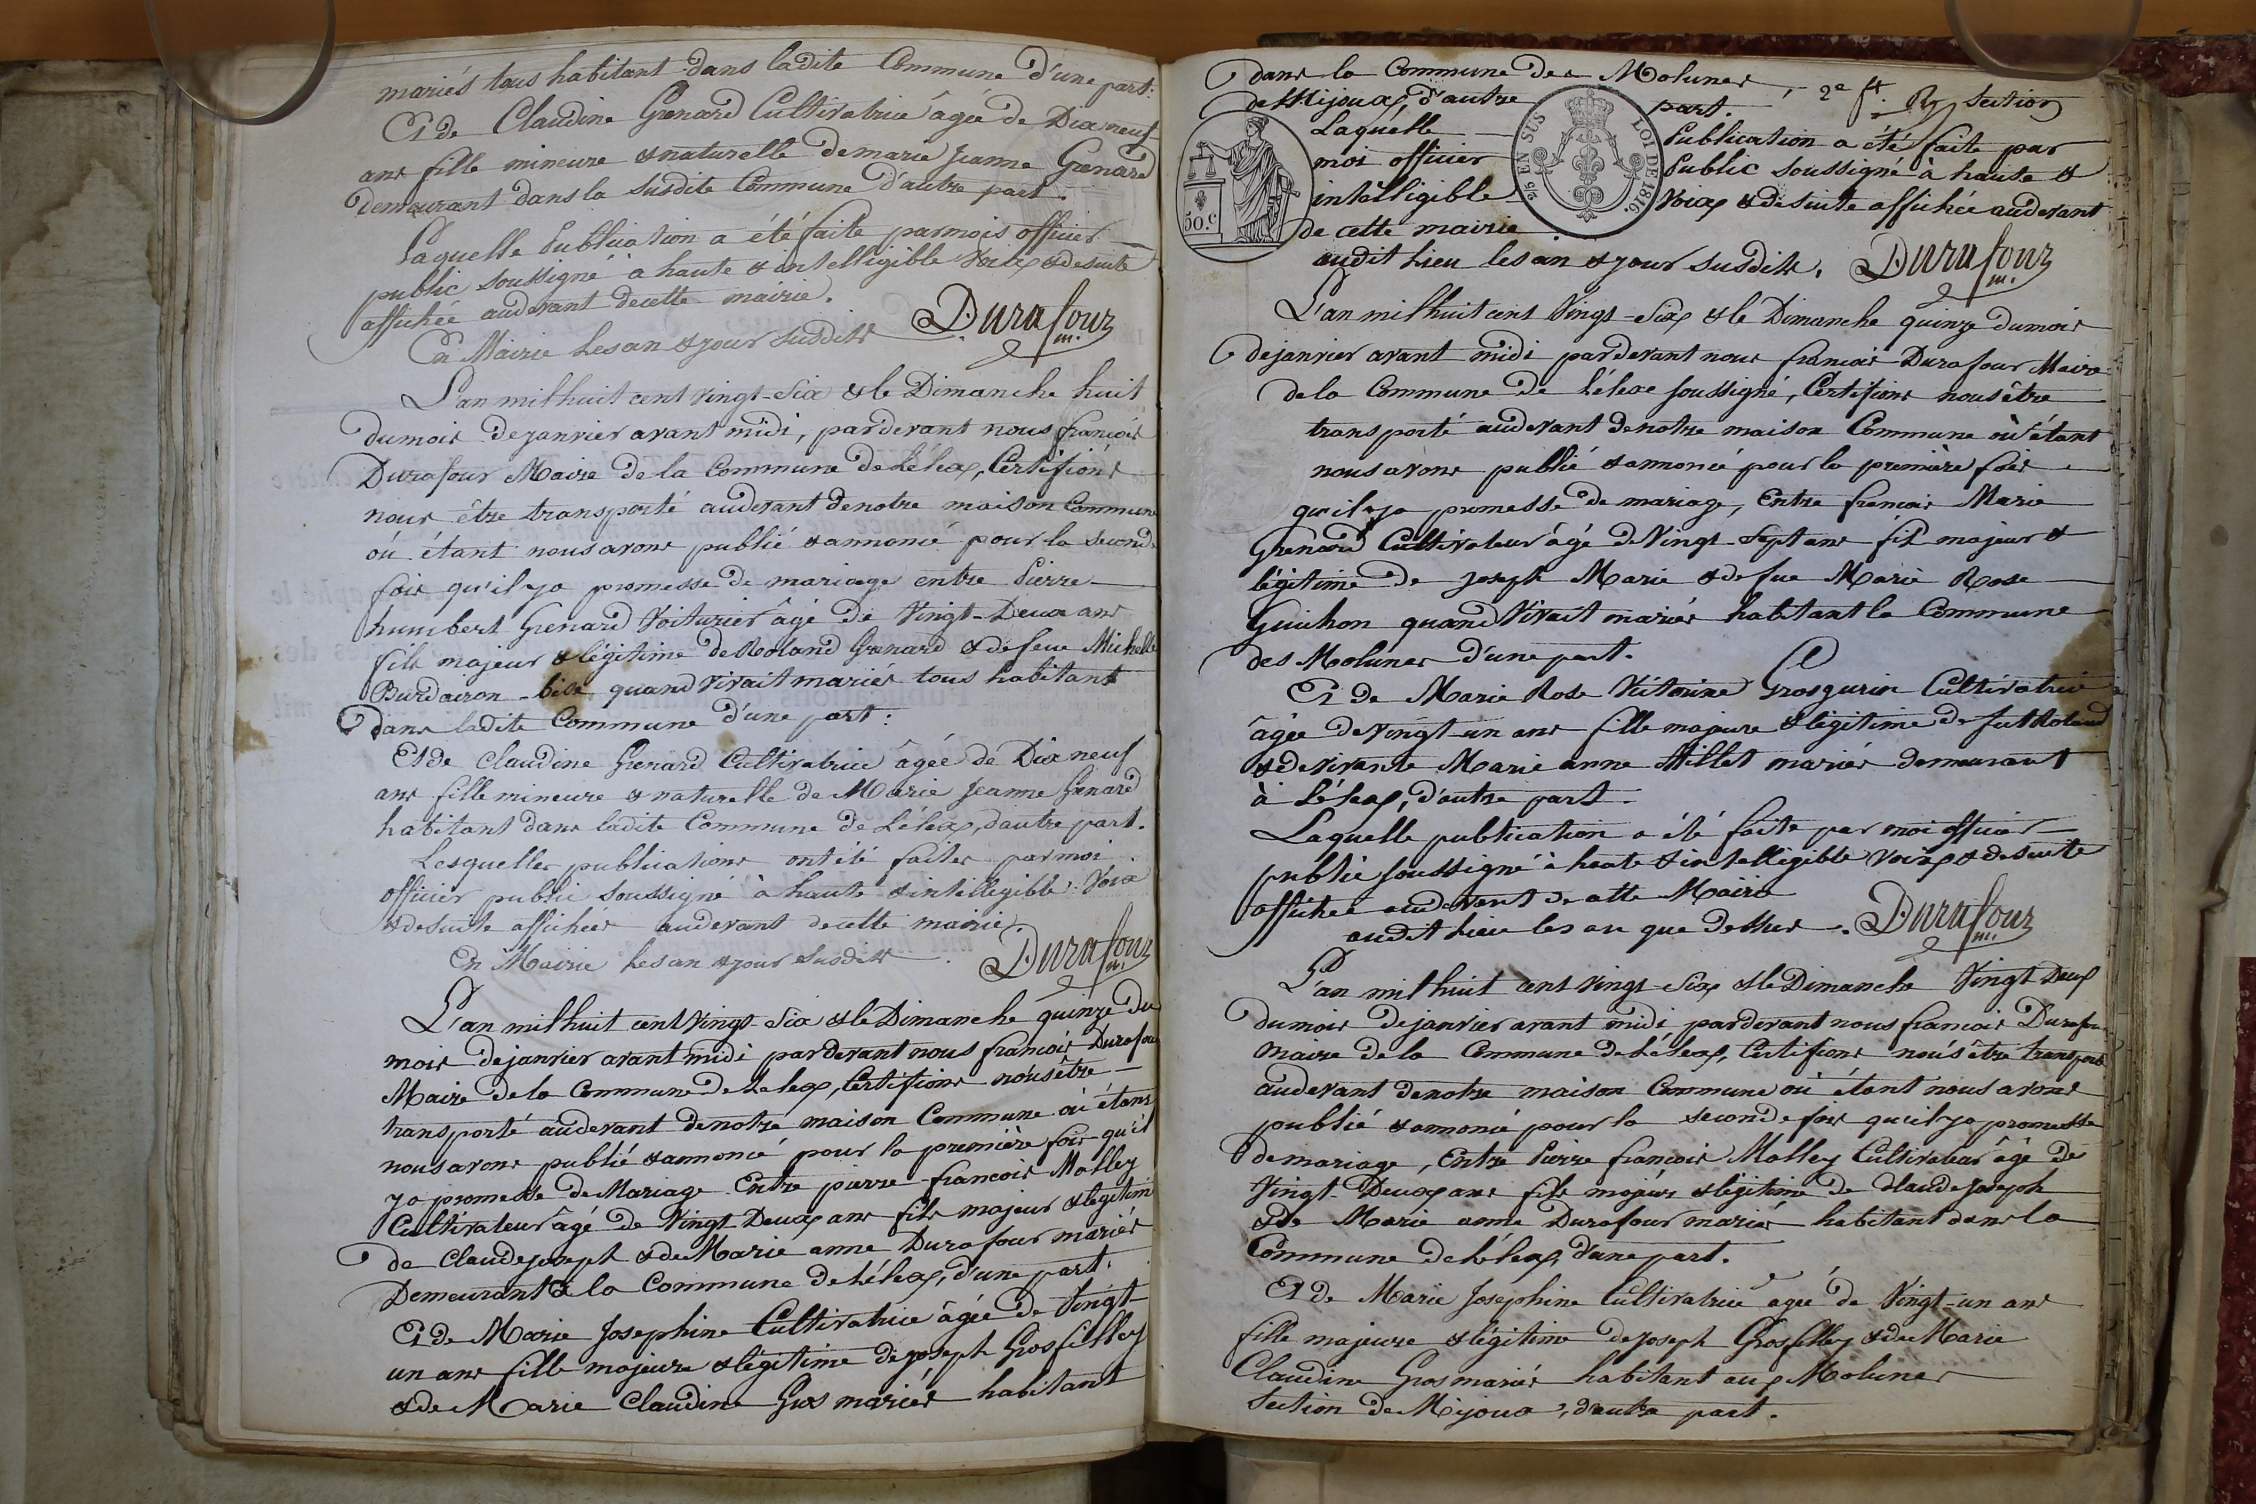 mariés tous habitant dans ladite Commune d'une part:
Et de Claudine Grenard Cultivatrice âgée de Dix neuf
ans fille mineure & naturelle de marie Jeanne Grenard
demeurant dans la susdite Commune d'autre part.
Laquelle Publication a été faite par mois officier
public soussigné à haute & intelligible Voix & de suite
affichée audevant de cette mairie.
En Mairie les an & jour susdits
Durafour m.
L'an mil huit cent vingt-six & le Dimanche huit
du mois de janvier avant midi, pardevant nous françois
Durafour Maire de la Commune de Lélex, Certifions
nous être transporté audevant de notre maison Commune
où étant nous avons publié & annoncé pour la seconde
fois qu'il y a promesse de mariage entre Pierre
humbert Grenard Voiturier âgé de Vingt-Deux ans
fils majeur & légitime de Roland Grenard & de feue Michelle
Burdairon-bise quand vivait mariés tous habitant
dans ladite Commune d'une part:
Et de Claudine Grenard Cultivatrice âgée de Dix neuf
ans fille mineure & naturelle de Marie Jeanne Grenard
habitant dans ladite Commune de Lélex, d'autre part.
Lesquelles publications ont été faites par moi
officier public soussigné à haute & intelligible Voix
& de suite affichées audevant de cette mairie.
En Mairie les an & jour susdits.
Durafour m.
L'an mil huit cent Vingt-Six & le Dimanche quinze du
mois de janvier avant midi pardevant nous françois Durafour
Maire de la Commune de Lelex, Certifions nous être
transporté audevant de notre maison Commune où étant
nous avons publié & annoncé pour la première fois qu'il
y a promesse de Mariage Entre pierre-françois Molley
Cultivateur âgé de Vingt Deux ans fils majeur & légitime
de Claude joseph & de Marie anne Durafour mariés
Demeurant à la Commune de Lélex, d'une part.
Et de Marie Josephine Cultivatrice âgée de Vingt
un ans fille majeure & légitime de joseph Grosfilley
& de Marie Claudine Gros mariés habitant
dans la Commune des Molunes, 2e ft. section
de Mijoux, d'autre part.
Laquelle Publication a été faite par
moi officier Public soussigné à haute &
intelligible Voix & de suite affichée audevant
de cette mairie.
audit Lieu les an & jour susdits.
Durafour m.
50.c
2/5 EN SUS
LOI DE 1816.
L'an mil huit cent Vingt-Six & le Dimanche quinze du mois
de janvier avant midi pardevant nous françois Durafour Maire
de la Commune de Lélex soussigné, Certifions nous être
transporté audevant de notre maison Commune où étant
nous avons publié & annoncé pour la première fois
qu'il y a promesse de mariage, Entre françois Marie
Grenard Cultivateur âgé de Vingt-Sept ans fils majeur &
légitime de Joseph Marie & de fue Marie Rose
Guichon quand Vivait mariés habitant la Commune
des Molunes d'une part.
Et de Marie Rose Victorine Grosgurin Cultivatrice
âgée de vingt-un ans fille majeure & légitime de fut Roland
& de vivante Marie anne Millet mariés demeurant
à Lélex, d'autre part.
Laquelle publication a été faite par moi officier
public soussigné à haute & intelligible voix & de suite
affichée audevant de cette Mairie
audit Lieu les an que dessus.
Durafour m.
L'an mil huit cent Vingt-Six & le Dimanche Vingt Deux
du mois de janvier avant midi, pardevant nous françois Durafour
Maire de la Commune de Lélex, Certifions nous être transporté
audevant de notre maison Commune où étant nous avons
publié & annoncé pour la seconde fois qu'il y a promesse
de mariage, Entre Pierre françois Molley Cultivateur âgé de
Vingt-Deux ans fils majeur & légitime de Claude Joseph
& de Marie anne Durafour mariés habitant dans la
Commune de Lélex, d'une part.
Et de Marie Josephine Cultivatrice âgée de Vingt-un ans
fille majeure & légitime de joseph Grosfilley & de Marie
Claudine Gros mariés habitant aux Molunes
Section de Mijoux, d'autre part.